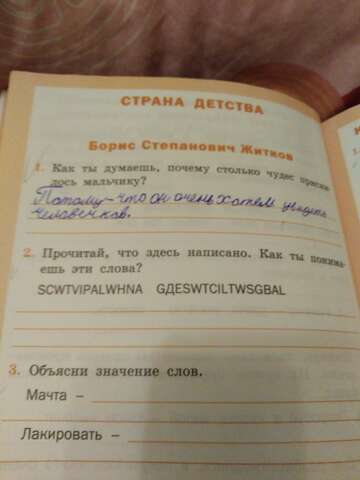 СТРАНА ДЕТСТВА
Борис Степанович Житков
1. Как ты думаешь, почему столько чудес присни-
лось мальчику?
Потому-что он очень хотел увидеть
человечков.
2. Прочитай, что здесь написано. Как ты понима-
ешь эти слова?
SCWTVIPALWHNA GДESWTCILTWSGBAL
3. Объясни значение слов.
Мачта –
Лакировать –